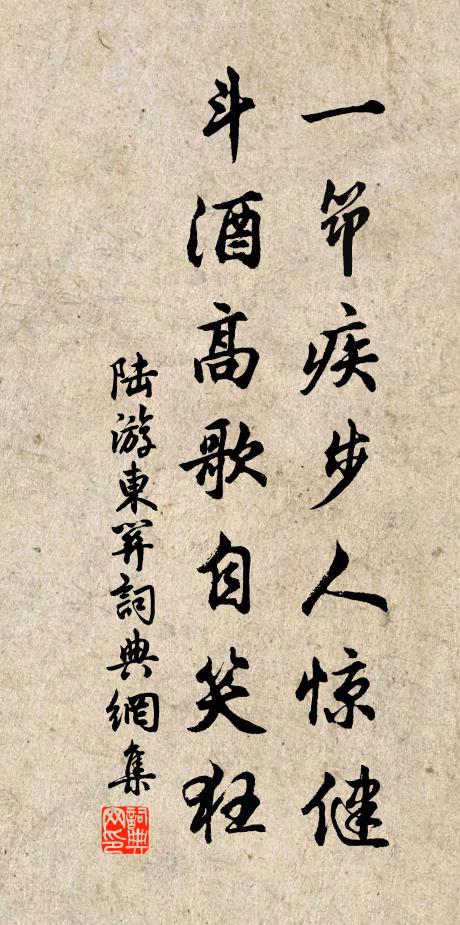 一筇疾步人惊健
斗酒高歌自笑狂
陆游東関詞典網集
詞典網印